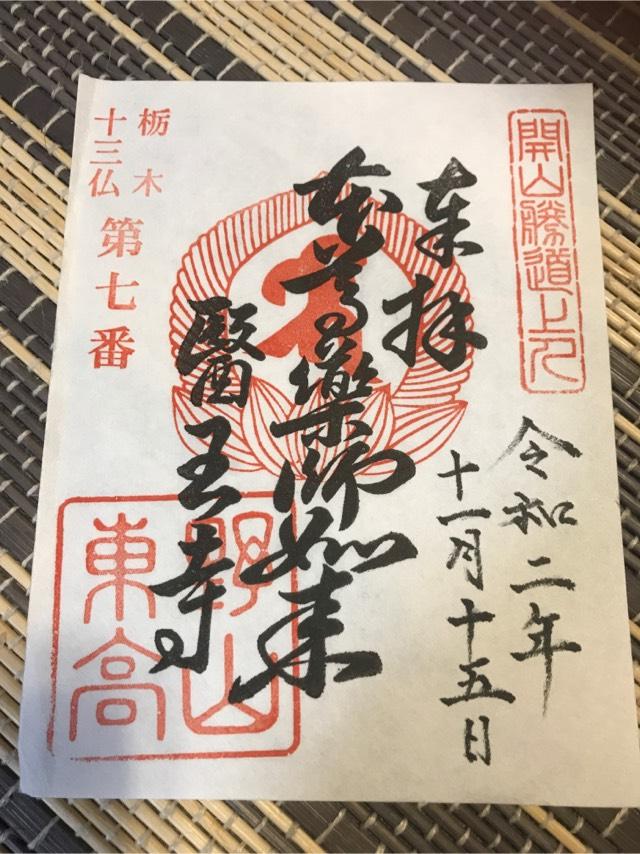 開山勝道上人
奉拝
令和二年
十一月十五日
本尊薬師如来
醫王寺
栃木
十三仏
第七番
東高野山